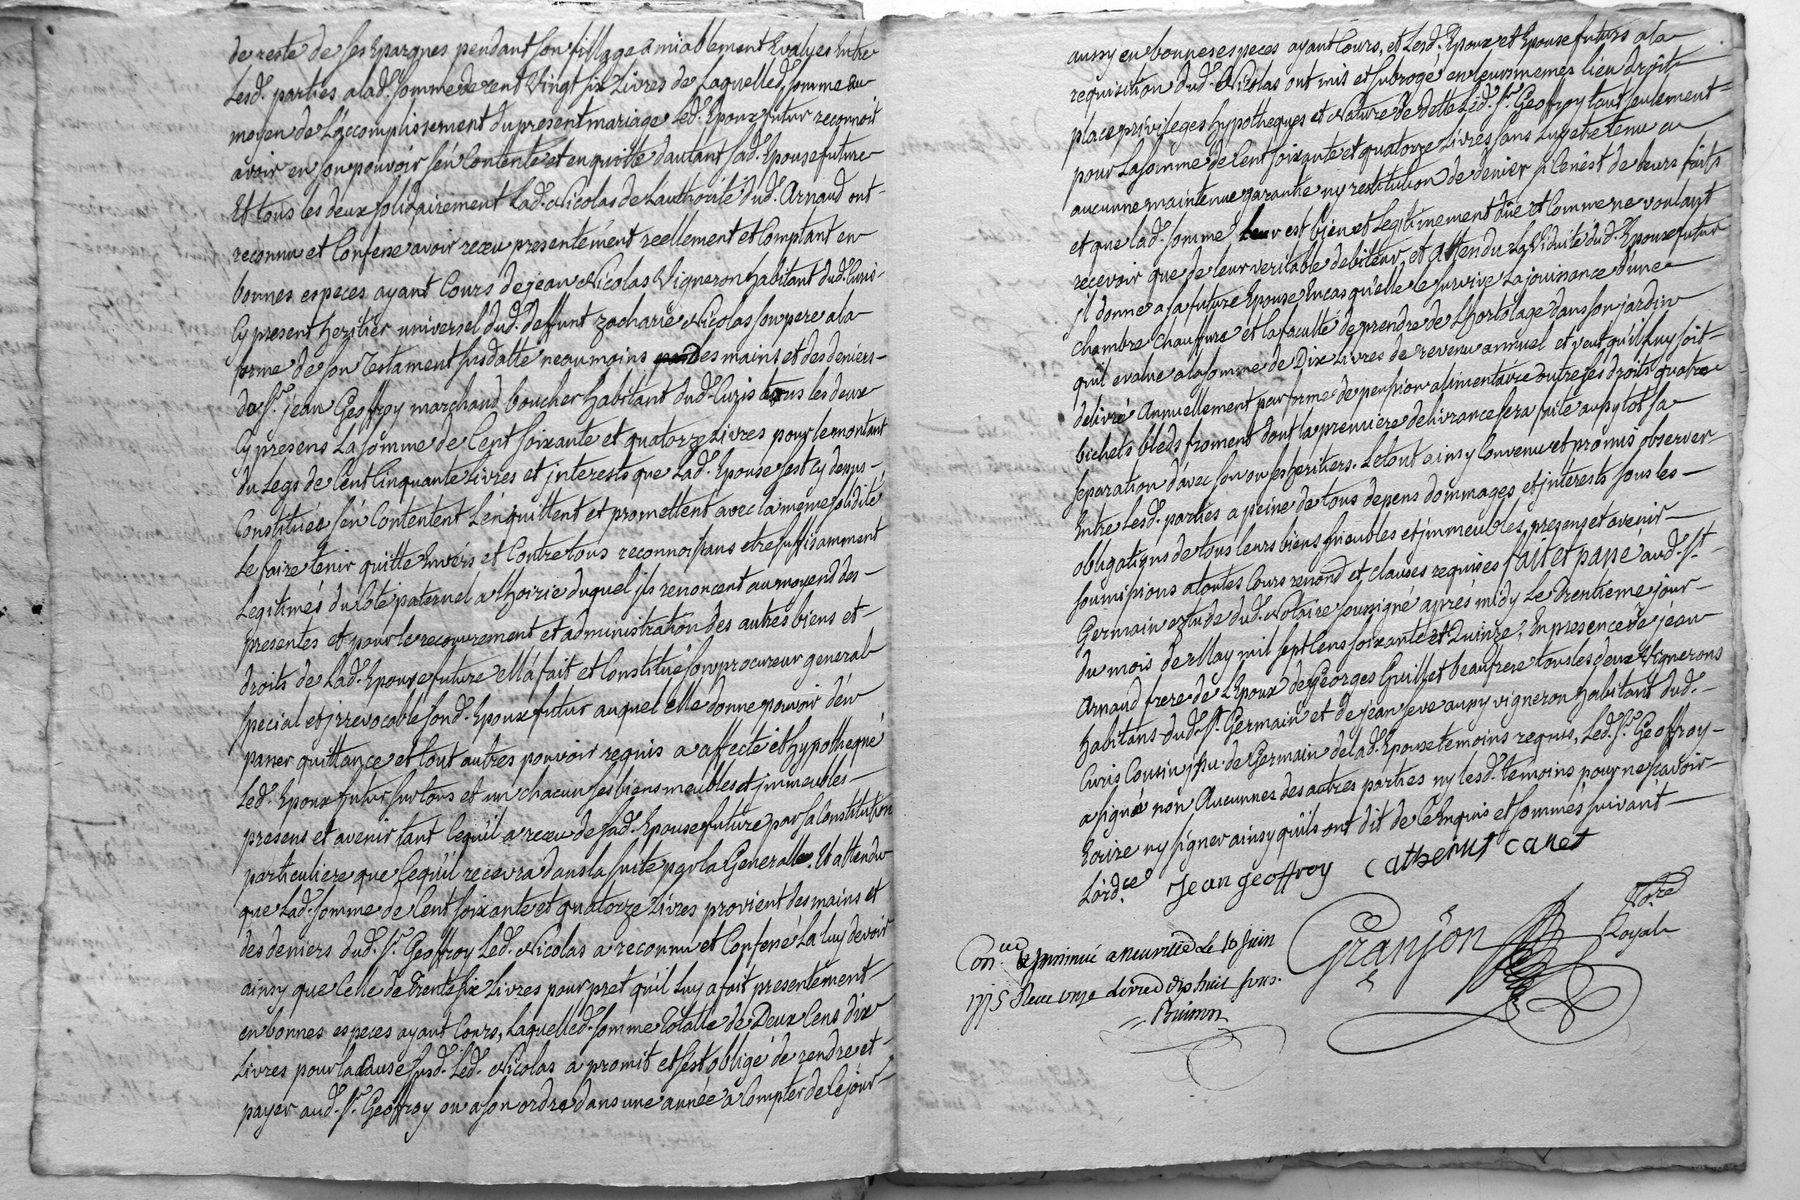 de reste de ses Epargnes pendant son fillage amiablement Evalues Entre
Lesd. parties alad. somme de cent Vingt six Livres de Laquelled. somme au
moyen de Láccomplissement du present mariage Led. Epoux futur reconnoit
avoir en son pouvoir sén Contente et en quitte dautant sad. Epouse future
Et tous les deux solidairement Lad. Nicolas de Lauthorité dud. Arnaud ont
reconnu et Confessé avoir receu presentement reellement et Comptant en
bonnes especes ayant Cours de jean Nicolas Vigneron habitant dud. Curis
Cy present heritier universel dud. deffunt zacharie Nicolas son pere ala
forme de son Testament susdatte neaumoins des mains et des deniers
de Sr. jean Geoffroy marchand boucher habitant dud. Curis tous les deux
Cy presens La somme de Cent soixante et quatorze Livres pour le montant
du Legs de Cent Cinquante Livres et jnterests que Lad. Epouse sest Cy dessus
Constituée sén Contentent Lénquittent et promettent avec la meme solidité
Le faire tenir quitte Envers et Contre tous reconnoissans etre suffisamment
Legitimés du Coté paternel a lhoirie duquel jls renoncent au moyend des
presentes et pour le recouvrement et administration des autres biens et
droits de Lad. Epouse future elle á fait et Constitué son procureur general
special et jrrevocable sond. Epoux futur auquel elle donne pouvoir dén
passer quittance et tout autres pouvoir requis a affecté et hypothequé
Led. Epoux futur sur tous et un chacun ses biens meubles et jmmeubles
presens et avenir tant Cequil a receu de sad. Epouse future par sa Constitution
particuliere que Cequil recevra dans la suite par la Generalle. Et attendu
que Lad. somme de Cent soixante et quatorze Livres provient des mains et
des deniers dud. Sr. Geoffroy Led. Nicolas a reconnu et Confessé La luy devoir
ainsy que Celle de Trente six Livres pour pret quil Luy a fait presentement
en bonnes especes ayant Cours, Laquelled. somme Totalle de Deux Cens dix
Livres pour la Cause susd. Led. Nicolas a promit et sest obligé de rendre et
payer aud. Sr. Geoffroy ou a son ordre dans une année a Compter de Cejour
aussy en bonnes especes ayant Cours, et Lesd. Epoux et Epouse futurs ala
requisition dud. Nicolas ont mis et subrogé en leurs memes lieu droit
place privileges hypotheques et Nature de dette Led. Sr. Geoffroy tant seulement
pour La somme de Cent soixante et quatorze Livres sans Luy etre tenu a
aucunne maintenue garantie ny restitution de denier si Ce nést de leurs faits
et que lad. somme Leur est bien et Legitimement düe et Comme ne voulant
recevoir que de leur veritable debiteur, et Attendu La Viduité dud. Epoux futur
jl donne a sa future Epouse En cas quelle le survive La jouissance dúne
chambre chauffure et la faculté de prendre de Lhortolage dans son jardin
quil evalue ala somme de Dix Livres de revenu annuel et veut quil Luy soit
delivré Annuellement par forme de pension alimentaire outre ses droits quatre
bichets bleds froment dont la premiere delivrance sera faite aussytot sa
separation dávec son ou ses heritiers. Le tout ainsy Convenu et promis observer
Entre Lesd. parties a peine de tous depens dommages et jnterests sous les
obligations de tous leurs biens meubles et jmmeubles, presens et avenir
soumissions atoutes Cours renond. et clauses requises fait et passé aud. St.
Germain etude dud. Notaire soussigné aprés midy Le Trentieme jour
du mois de May mil sept Cens soixante et Quinze; En presence de jean
Arnaud frere de LEpoux de Georges Guillet beaufrere tous les deux Vignerons
habitans dud. St. Germain et de jean seve aussy vigneron habitant dud.
Curis Cousin jssu de Germain de lad. Epouse temoins requis, Led. Sr. Geoffroy
a signé non Aucunnes des autres parties ny lesd. temoins pour ne sçavoir
Ecrire ny signer ainsy quils ont dit de Ce Enquis et sommés suivant
Lórd.ce Jean geoffroy Catherin Canet
Granjon No.re
Royal
Con.lé & jnsinué a neuville Le 10 juin
1775 Receu onze Livres dix huit sous.